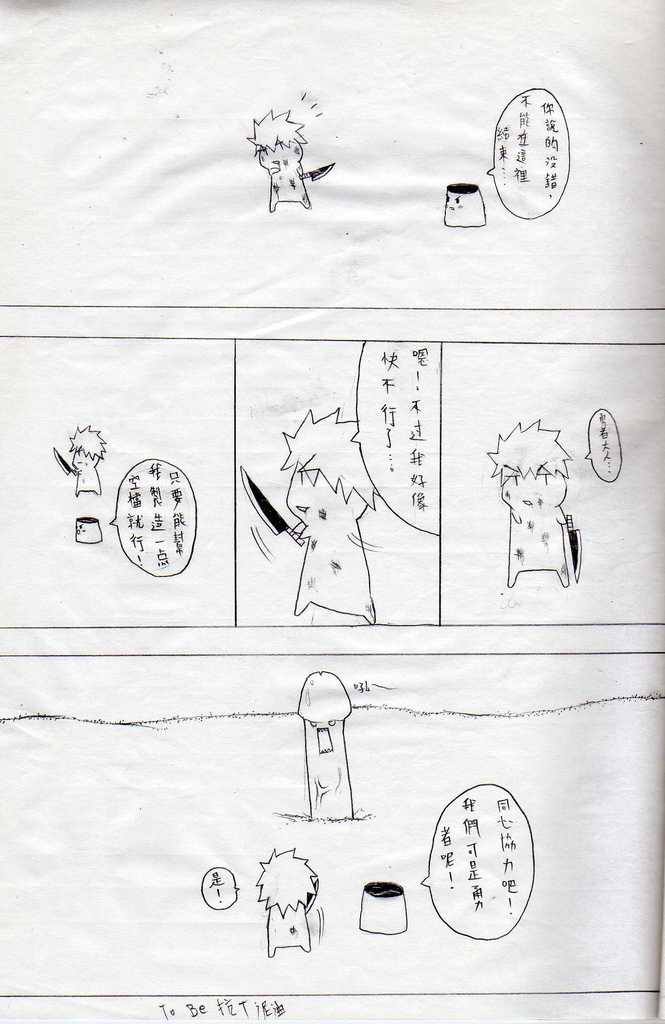 你說的沒錯，
不能在這裡
結束…
勇者大人…
嗯！不过我好像
快不行了…
只要能幫
我製造一点
空檔就行！
吼
同心協力吧！
我們可是勇
者呢！
是！
To Be 抗下泥油